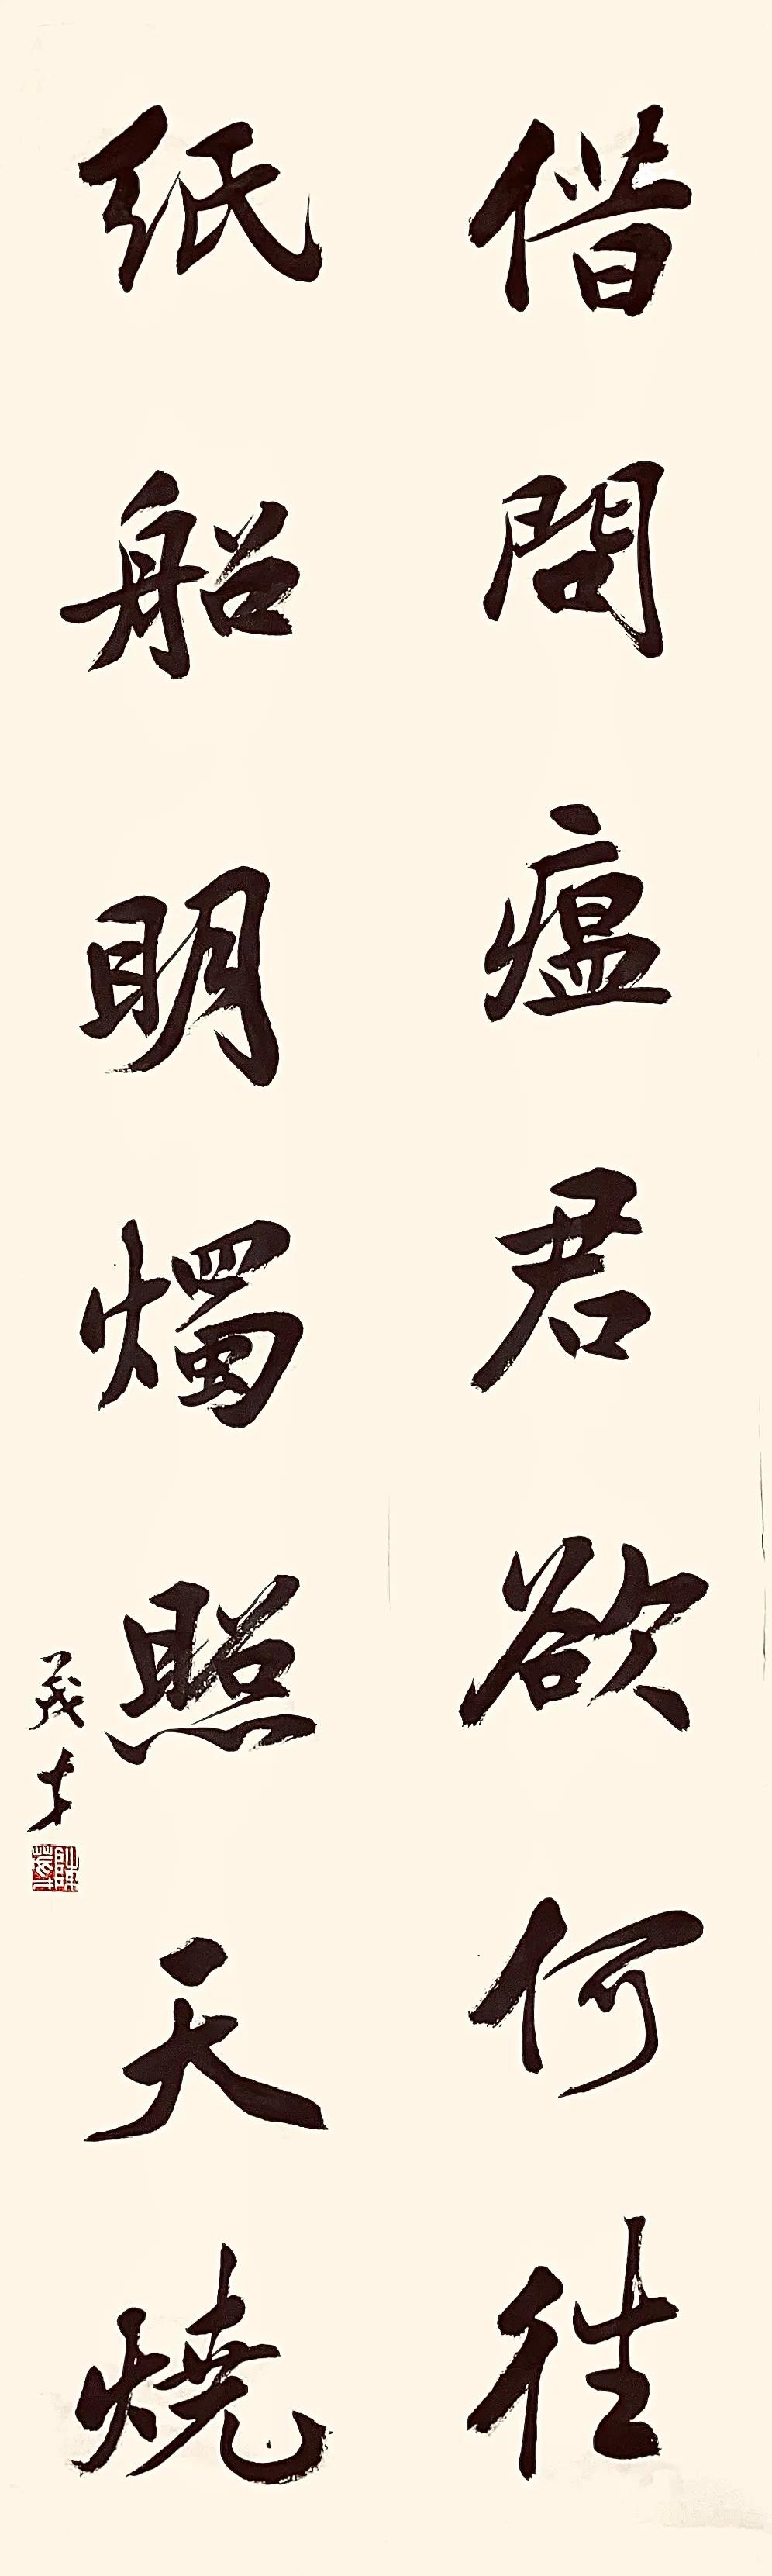 借問瘟君欲何往
紙船明燭照天燒
茂才